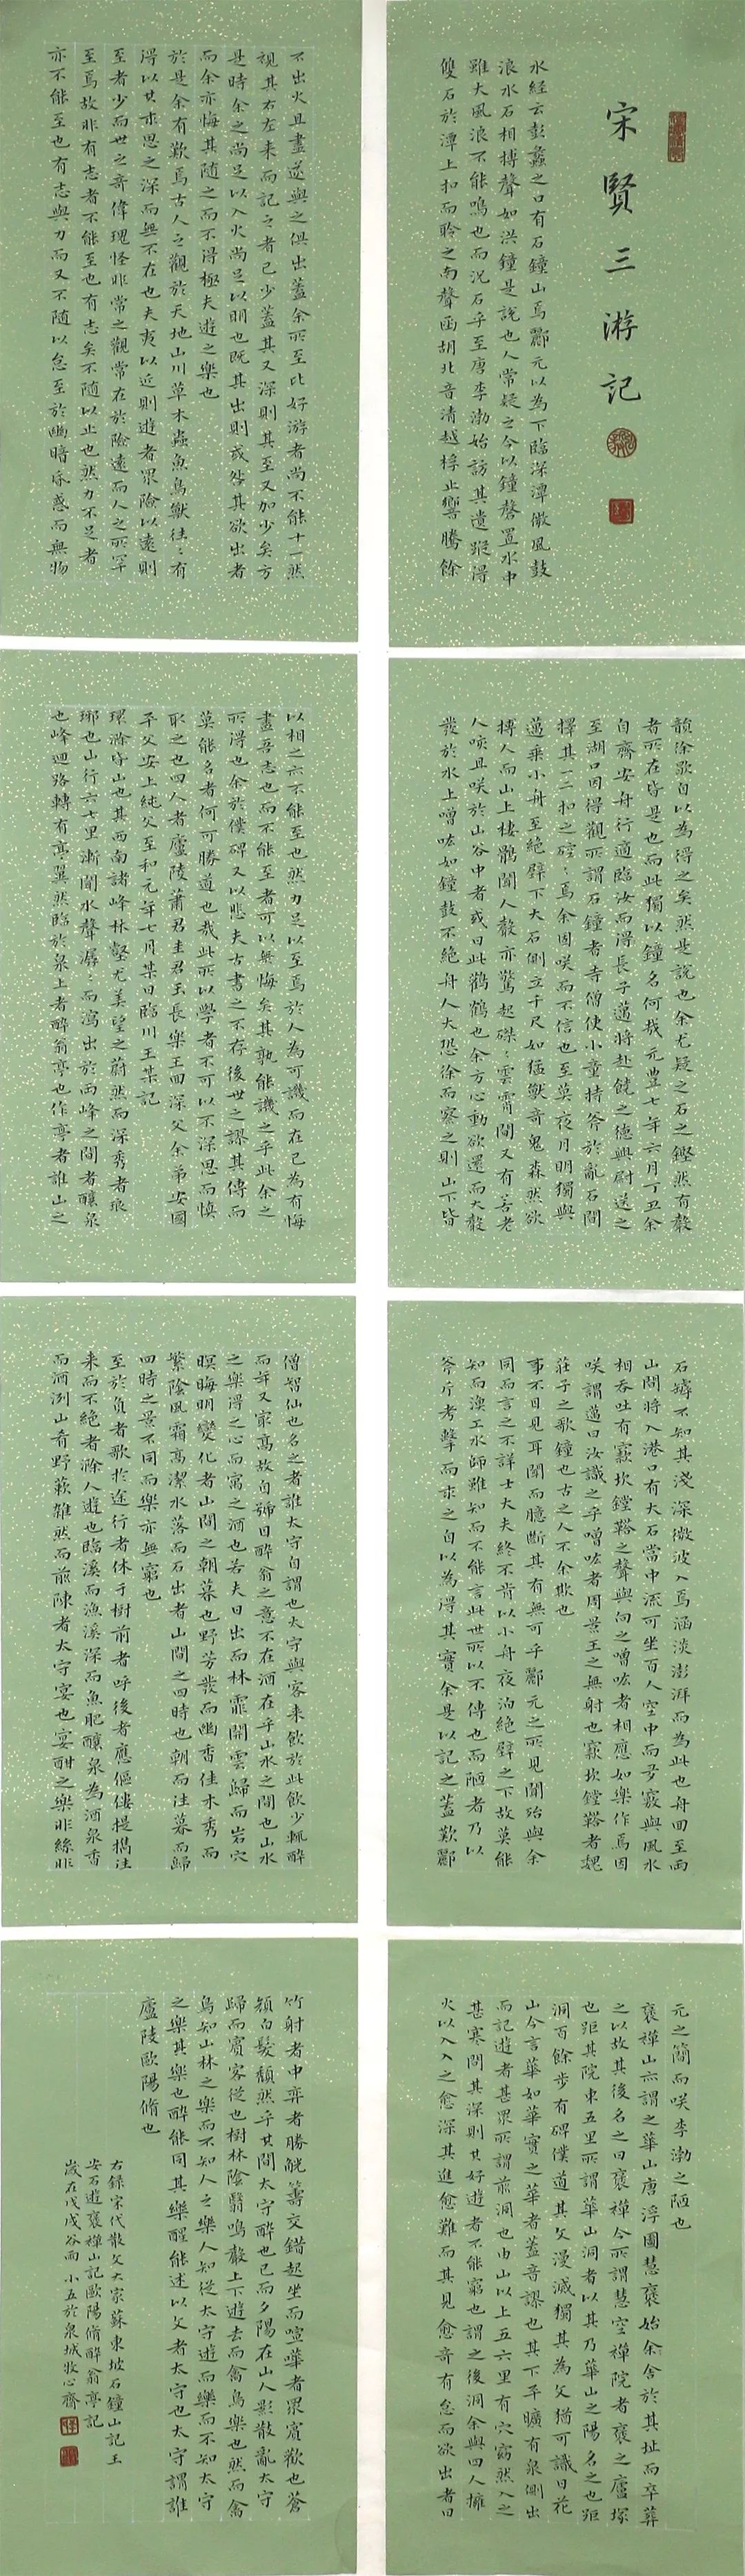 宋賢三游記
水經云彭蠡之口有石鐘山焉酈元以為下臨深潭微風鼓
浪水石相搏聲如洪鐘是說也人常疑之今以鐘磬置水中
雖大風浪不能鳴也而況石乎至唐李渤始訪其遺蹤得
雙石於潭上扣而聆之南聲函胡北音清越桴止響騰餘
韻徐歇自以為得之矣然是說也余尤疑之石之鏗然有聲
者所在皆是也而此獨以鐘名何哉元豐七年六月丁丑余
自齊安舟行適臨汝而得長子邁將赴饒之德興尉送之
至湖口因得觀所謂石鐘者寺僧使小童持斧於亂石間
擇其一二扣之硿:焉余固咲而不信也至莫夜月明獨與
邁乘小舟至絕壁下大石側立千尺如猛獸奇鬼森然欲
搏人而山上棲鶻聞人聲亦驚起磔:雲霄間又有若老
人咳且咲於山谷中者或曰此鸛鶴也余方心動欲還而大聲
發於水上噌吰如鐘鼓不絕舟人大恐徐而察之則山下皆
石罅不知其淺深微波入焉涵淡澎湃而為此也舟回至兩
山間將入港口有大石當中流可坐百人空中而多竅與風水
相吞吐有窾坎鏜鞳之聲與向之噌吰者相應如樂作焉因
咲謂邁曰汝識之乎噌吰者周景王之無射也窾坎鏜鞳者魏
莊子之歌鐘也古之人不余欺也
事不目見耳聞而臆斷其有無可乎酈元之所見聞殆與余
同而言之不詳士大夫終不肯以小舟夜泊絕壁之下故莫能
知而漁工水師雖知而不能言此世所以不傳也而陋者乃以
斧斤考擊而求之自以為得其實余是以記之蓋歎酈
元之簡而咲李渤之陋也
褒禪山亦謂之華山唐浮圖慧褒始余舍於其址而卒葬
之以故其後名之曰褒禪今所謂慧空禪院者褒之廬塚
也距其院東五里所謂華山洞者以其乃華山之陽名之也距
洞百餘步有碑僕道其文漫滅獨其為文猶可識曰花
山今言華如華實之華者蓋音謬也其下平曠有泉側出
而記遊者甚眾所謂前洞也由山以上五六里有穴窈然入之
甚寒問其深則其好遊者不能窮也謂之後洞余與四人擁
火以入入之愈深其進愈難而其見愈奇有怠而欲出者曰
不出火且盡遂與之俱出蓋余所至比好游者尚不能十一然
視其右左來而記之者已少蓋其又深則其至又加少矣方
是時余之尚足以入火尚足以明也既其出則或咎其欲出者
而余亦悔其隨之而不得極夫遊之樂也
於是余有歎焉古人之觀於天地山川草木蟲魚鳥獸往:有
得以其求思之深而無不在也夫夷以近則遊者眾險以遠則
至者少而世之奇偉瑰怪非常之觀常在於險遠而人之所罕
至焉故非有志者不能至也有志矣不隨以止也然力不足者
亦不能至也有志與力而又不隨以怠至於幽暗昏惑而無物
以相之亦不能至也然力足以至焉於人為可譏而在己為有悔
盡吾志也而不能至者可以無悔矣其孰能譏之乎此余之
所得也余於僕碑又以悲夫古書之不存後世之謬其傳而
莫能名者何可勝道也哉此所以學者不可以不深思而慎
取之也四人者廬陵蕭君圭君玉長樂王回深父余弟安國
平父安上純父至和元年七月某日臨川王某記
環滁皆山也其西南諸峰林壑尤美望之蔚然而深秀者琅
琊也山行六七里漸聞水聲潺而瀉出於兩峰之間者釀泉
也峰迴路轉有亭翼然臨於泉上者醉翁亭也作亭者誰山之
僧智仙也名之者誰太守自謂也太守與客來飲於此飲少輒醉
而年又最高故自號曰醉翁之意不在酒在乎山水之間也山水
之樂得之心而寓之酒也若夫日出而林霏開雲歸而岩穴
暝晦明變化者山間之朝暮也野芳發而幽香佳木秀而
繁陰風霜高潔水落而石出者山間之四時也朝而往暮而歸
四時之景不同而樂亦無窮也
至於負者歌於途行者休于樹前者呼後者應傴僂提攜往
來而不絕者滁人遊也臨溪而漁溪深而魚肥釀泉為酒泉香
而酒洌山肴野蔌雜然而前陳者太守宴也宴酣之樂非絲非
竹射者中弈者勝觥籌交錯起坐而喧嘩者眾賓歡也蒼
顏白髮頹然乎其間太守醉也已而夕陽在山人影散亂太守
歸而賓客從也樹林陰翳鳴聲上下遊去而禽鳥樂也然而禽
鳥知山林之樂而不知人之樂人知從太守遊而樂而不知太守
之樂其樂也醉能同其樂醒能述以文者太守也太守謂誰
廬陵歐陽脩也
右錄宋代散文大家蘇東坡石鐘山記王
安石遊褒禪山記歐陽脩醉翁亭記
歲在戊戌谷雨小五於泉城牧心齋